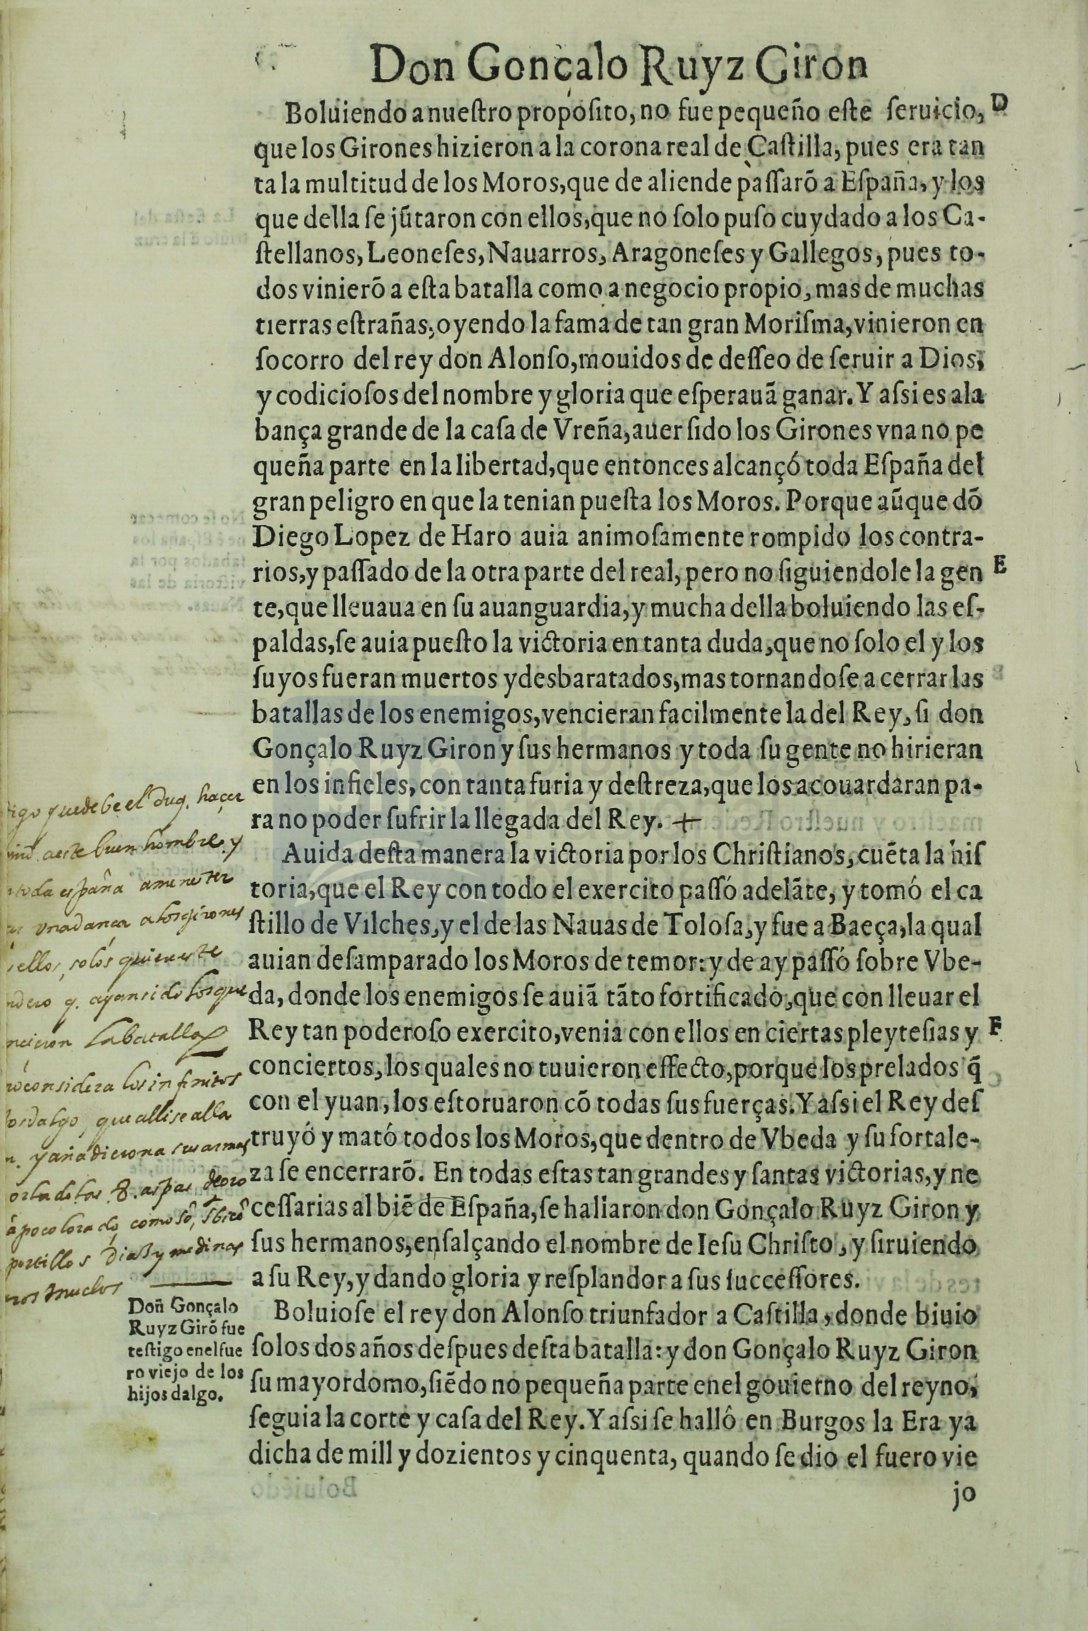 Don Gonçalo Ruyz Giron
Boluiendo a nuestro proposito, no fue pequeño este seruicio, D
que los Girones hizieron a la corona real de Castilla, pues era tan
ta la multitud de los Moros, que de aliende passarõ a España, y los
que della se jũtaron con ellos, que no solo puso cuydado a los Ca-
stellanos, Leoneses, Nauarros, Aragoneses y Gallegos, pues to-
dos vinierõ a esta batalla como a negocio propio, mas de muchas
tierras estrañas, oyendo la fama de tan gran Morisma, vinieron en
socorro del rey don Alonso, mouidos de desseo de seruir a Dios,
y codiciosos del nombre y gloria que esperauã ganar. Y assi es ala
bança grande de la casa de Vreña, auer sido los Girones vna no pe
queña parte en la libertad, que entonces alcançó toda España del
gran peligro en que la tenian puesta los Moros. Porque aũque dõ
Diego Lopez de Haro auia animosamente rompido los contra-
rios, y passado de la otra parte del real, pero no siguiendole la gen E
te, que lleuaua en su auanguardia, y mucha della boluiendo las es-
paldas, se auia puesto la victoria en tanta duda, que no solo el y los
suyos fueran muertos y desbaratados, mas tornandose a cerrar las
batallas de los enemigos, vencieran facilmente la del Rey, si don
Gonçalo Ruyz Giron y sus hermanos y toda su gente no hirieran
en los infieles, con tanta furia y destreza, que los acouardaran pa-
ra no poder sufrir la llegada del Rey. +
Auida desta manera la victoria por los Christianos, cuẽta la his
toria, que el Rey con todo el exercito passó adelãte, y tomó el ca
stillo de Vilches, y el de las Nauas de Tolosa, y fue a Baeça, la qual
auian desamparado los Moros de temor: y de ay passó sobre Vbe-
da, donde los enemigos se auiã tãto fortificado, que con lleuar el
Rey tan poderoso exercito, venia con ellos en ciertas pleytesias y F
conciertos, los quales no tuuieron effecto, porque los prelados q̃
con el yuan, los estoruaron cõ todas sus fuerças. Y assi el Rey des
truyó y mató todos los Moros, que dentro de Vbeda y su fortale-
za se encerrarõ. En todas estas tan grandes y santas victorias, y ne
cessarias al biẽ de España, se hallaron don Gonçalo Ruyz Giron y
sus hermanos, ensalçando el nombre de Iesu Christo, y siruiendo
a su Rey, y dando gloria y resplandor a sus successores.
Boluiose el rey don Alonso triunfador a Castilla, donde biuio
solos dos años despues desta batalla: y don Gonçalo Ruyz Giron
su mayordomo, siẽdo no pequeña parte enel gouierno del reyno,
seguia la corte y casa del Rey. Y assi se halló en Burgos la Era ya
dicha de mill y dozientos y cinquenta, quando se dio el fuero vie
jo
que debe el duq. haçer
a este buen hombre. y
toda españa
a los girones
ellos solos
q. los que
la batalla
considera los infinitos
que alli se alla
y añadieron a sus armas
8. aspas de oro
como sō
portillos Dias y medinas
muchos
Don Gonçalo
Ruyz Girõ fue
testigo enel fue
ro viejo de los
hijos dalgo.